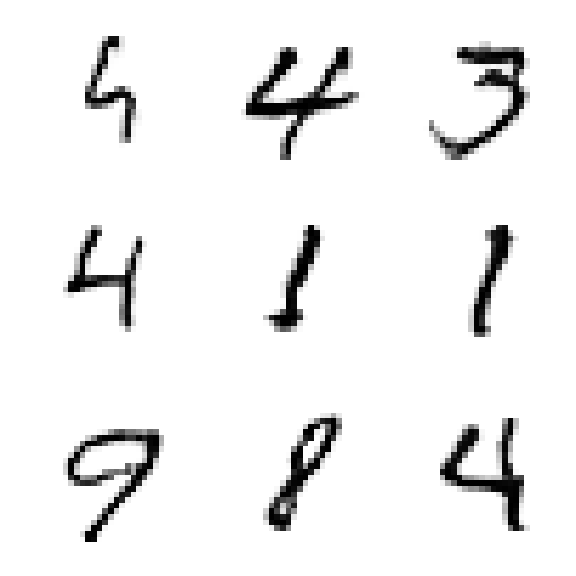 4 4 3
4 1 1
9 8 4